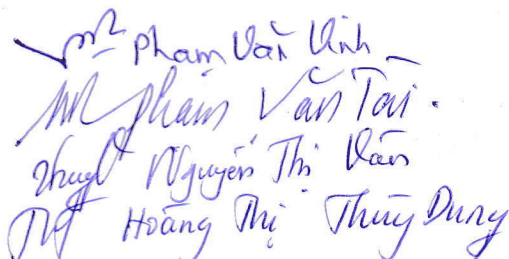 Phạm Văn Vinh
Phạm Văn Tài.
Nguyễn Thị Vân
Hoàng Thị Thùy Dung